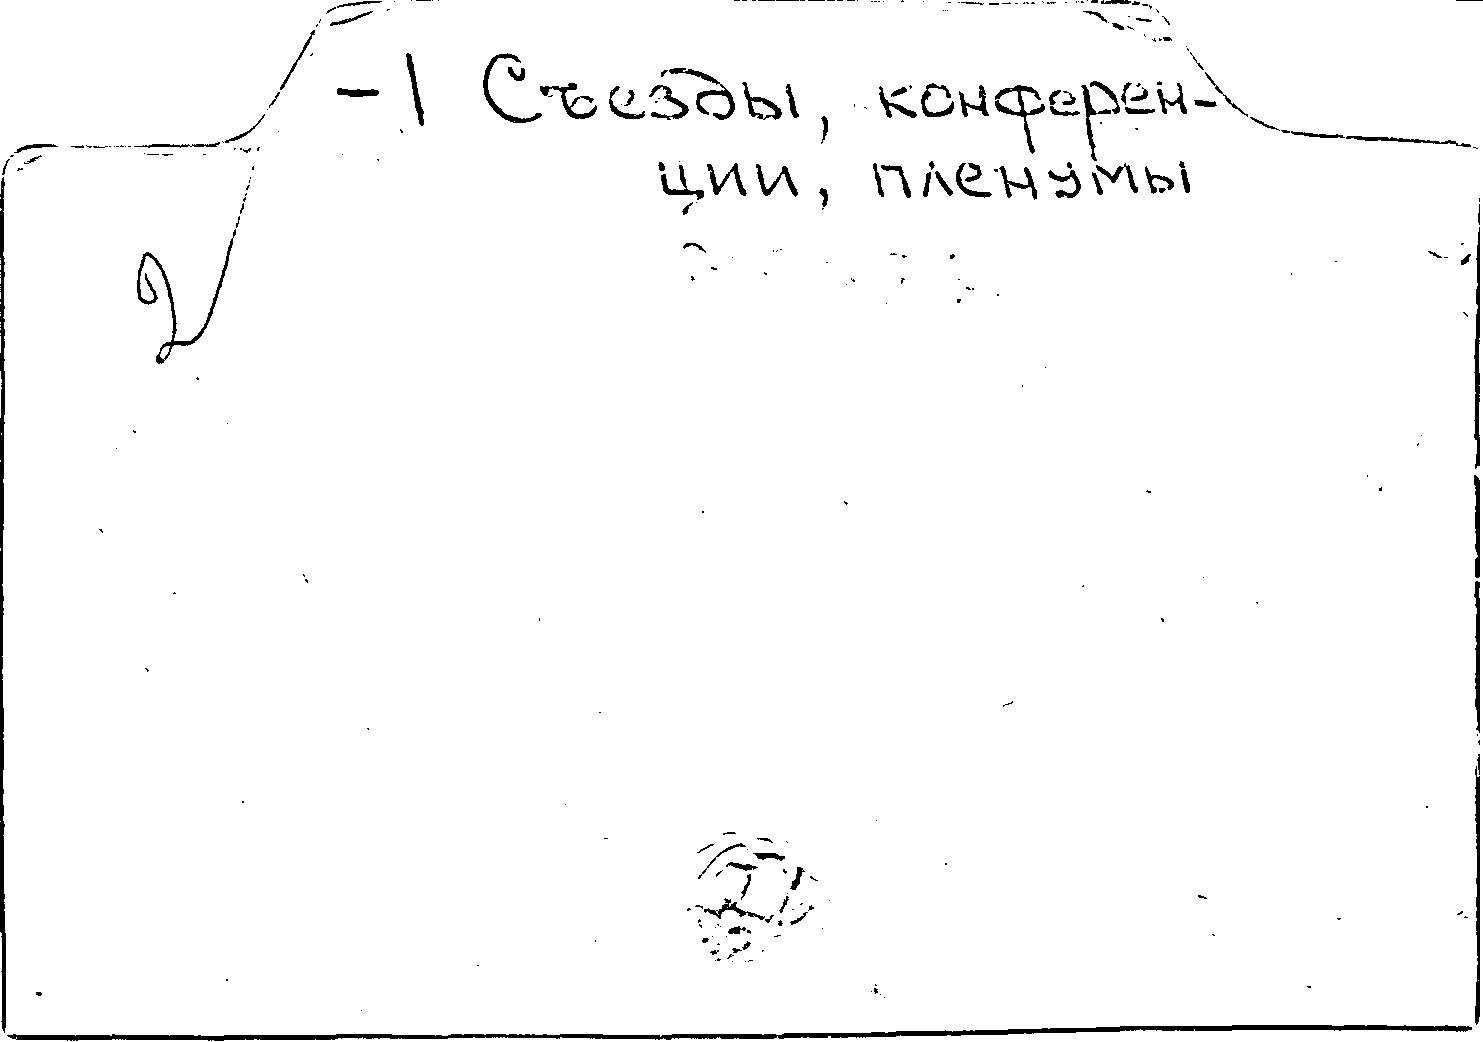 -1 Съезды, конферен-
ции, пленумы